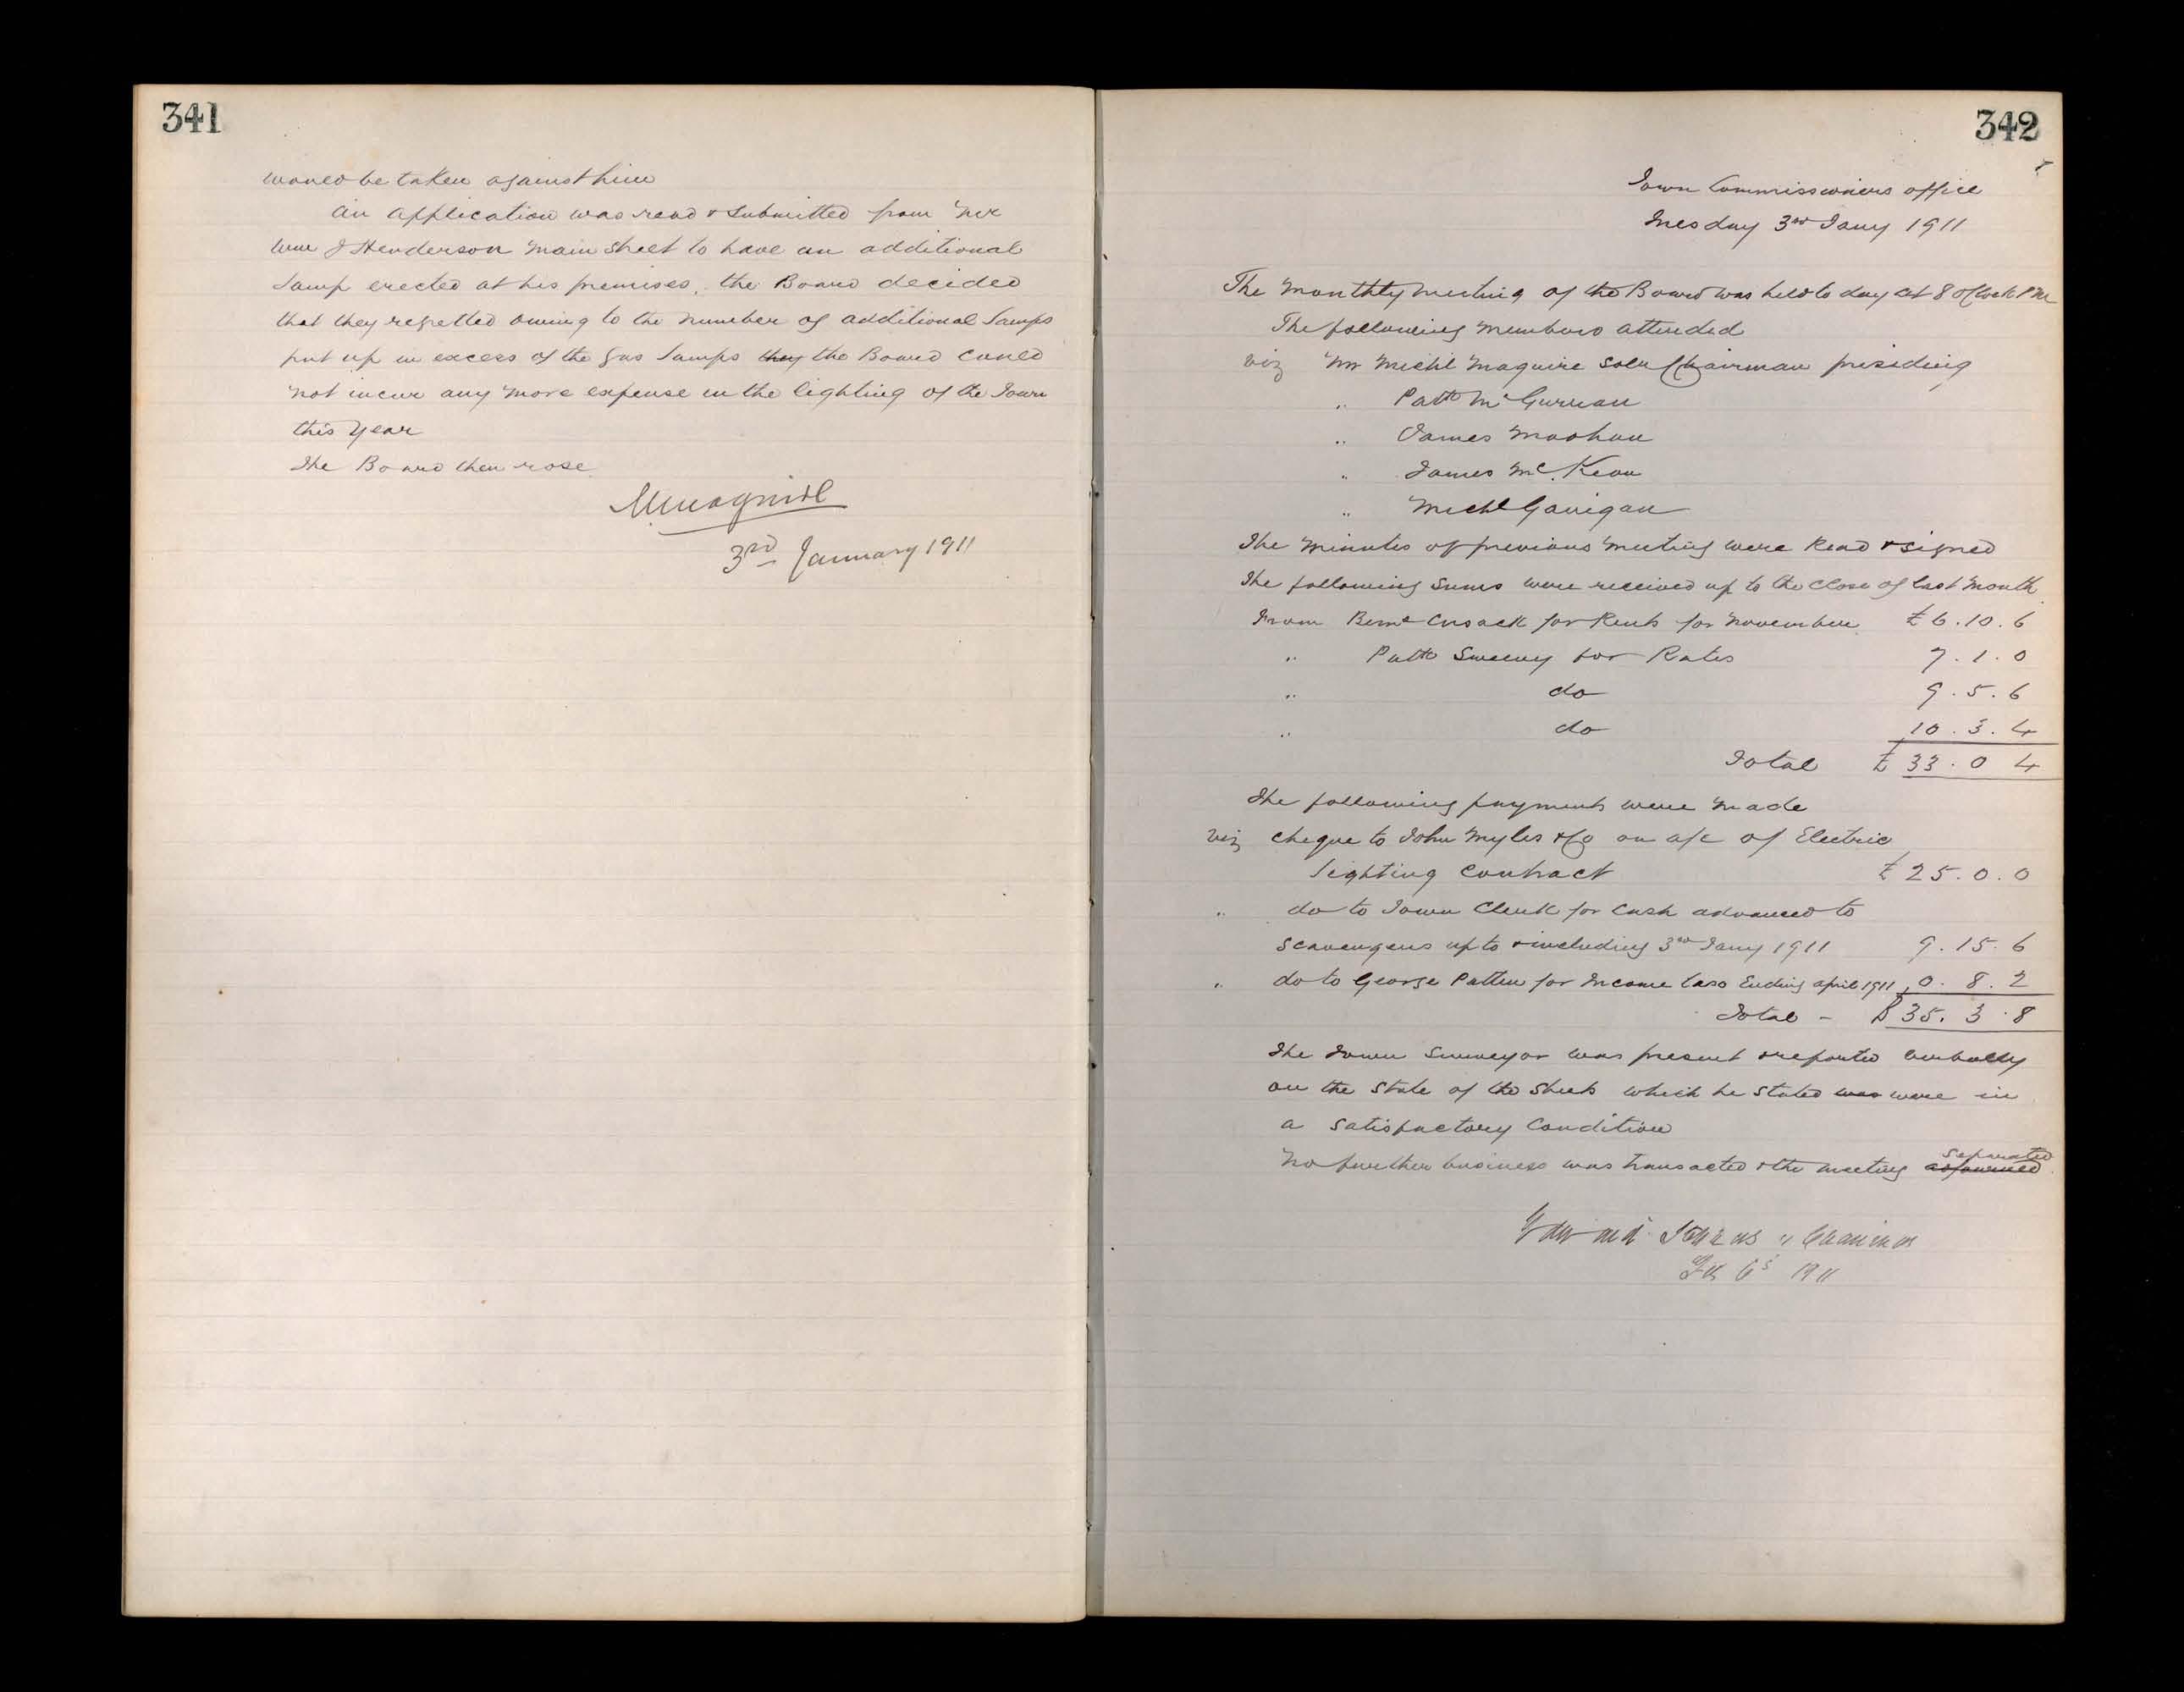 341
would be taken against him
An application was read & submitted from Mr
Wm J Henderson Main Street to have an additional
Lamp erected at his premises, the Board decided
that they regretted owing to the number of additional Lamps
put up in excess of the Gas Lamps they the Board could
not incur any more expense in the lighting of the Town
this year
The Board then rose
MMaguire
3rd January 1911
342
Town Commissioners office
Tuesday 3rd Jany 1911
The Monthly Meeting of the Board was held to day at 8 oClock PM
The following Members attended
viz Mr Michl Maguire Solr Chairman presiding
" Patk McGurran
" James
" James McKeon
" Michl Garrigan
The Minutes of previous Meeting were Read & signed
The following sums were received up to the close of last Month
From Bernd Cusack for Rents for November £6.10.6
" Patk Sweeny for Rates 7.1.0
" do 9.5.6
" do 10.3.4
Total £33.0 4
The following payments were made
viz cheque to John Myles & Co on a/c of Electric
Lighting Contract £25.0.0
" do to Town Clerk for cash advanced to
scavengers up to & including 3rd Jany 1911 9.15.6
" do to George Patten for Income Tax Ending April 1911 0.8.2
Total - £35.3.8
The Town Surveyor was present & reported verbally
on the state of the Streets which he stated was were in
a satisfactory Condition
No further business was transacted & the meeting adjourned separated
Edward Chairman
1911